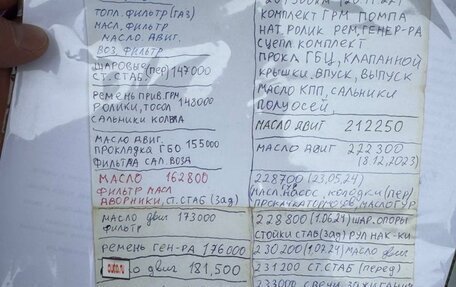 ТОПЛ.ФИЛЬТР (ГАЗ)
МАСЛ. ФИЛЬТР
МАСЛО ДВИГ.
ВОЗ. ФИЛЬТР
ШАРОВЫЕ (пер) 147000
СТ. СТАБ.
РЕМЕНЬ ПРИВ. ГРМ,
РОЛИКИ, ТОСОЛ 148000
САЛЬНИКИ КОЛВАЛА
МАСЛО ДВИГ.
ПРОКЛАДКА ГБО 155000
ФИЛЬТРА САЛ. ВОЗД
МАСЛО 162800
ФИЛЬТР МАСЛ
ДВОРНИКИ, П. СТАБ (зад)
МАСЛО ДВИГ 173000
ФИЛЬТР
РЕМЕНЬ ГЕН-РА 176000
О ДВИГ 181,500
КОМПЛЕКТ ГРМ ПОМПА
НАТ. РОЛИК РЕМ. ГЕНЕР-РА
СЦЕПЛ КОМПЛЕКТ
ПРОКЛ ГБЦ, КЛАПАННОЙ
КРЫШКИ, ВПУСК, ВЫПУСК
МАСЛО КПП, САЛЬНИКИ
ПОЛУОСЕЙ,
МАСЛО ДВИГ 212250
МАСЛО ДВИГ 222300
(8.12.2023)
228700 (23.05.24)
МАСЛ. НАСОС, КОЛОДКИ (пер)
228800 (1.06.24) ШАР. ОПОРЫ
СТОЙКИ СТАБ (зад) РУЛ НАК-КИ
230200 (1.07.24) МАСЛО ДВИГ
231200 СТ. СТАБ (перед)
233000 СВЕЧИ ЗАЖИГАНИЯ